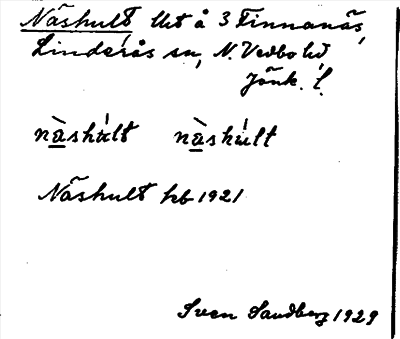 Näshult Ut å 3 Finnanäs,
Linderås sn, N. Vedbo hd
Jönk. l.
nà̱shu̍lt nà̱shu̍lt
Näshult hb 1921
Sven Sandberg 1929